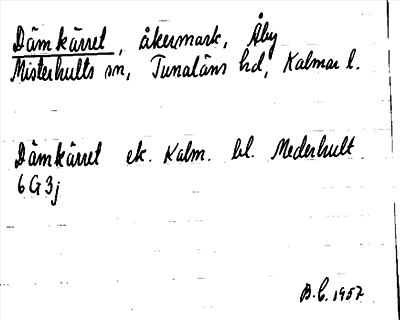 Dämkärret, åkermark, Åby
Misterhults sn, Tunaläns hd, Kalmar l.
Dämkärret ek. Kalm. bl. Mederhult
6G3j
B.C. 1957